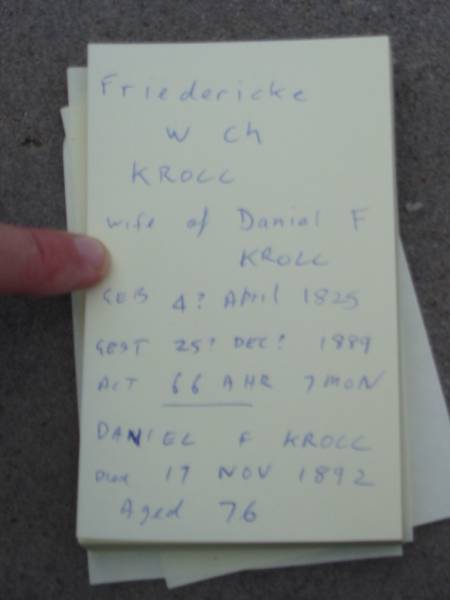 Friedericke
W Ch
KROLL
wife of Daniel F
KROLL
GEB 4? April 1825
GEST 25? DEC? 1889
ACT 66 AHR 7 MON
DANIEL F KROLL
Died 17 NOV 1892
Aged 76